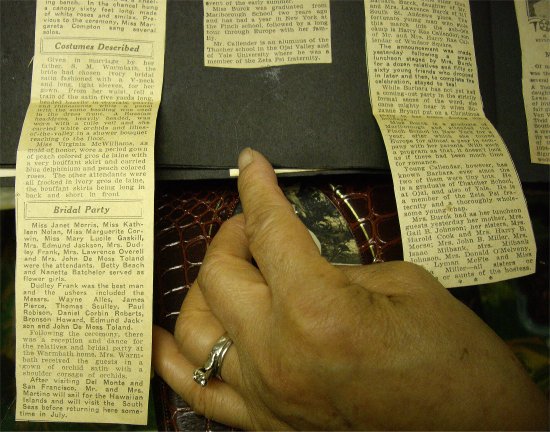 bench. In the chancel was
a canopy sixty feet long made
of white roses and similax. Pre-
vious to the ceremony, Miss Mar-
gareta Compton sang several
solos.
Costumes Described
Given in marriage by her
father, S. M. Warmbath, the
bride had chosen ivory bridal
satin fashioned with a V-neck
and long, tight sleeves, for her
gown. From her waist, fell a
train of the satin five yards long,
to the dress from. A Russian
headdress, heavily beaded, was
worn with a tulle veil and she
carried white orchids and lilies-
of-the-valley in a shower bouquet
reaching to the floor.
Miss Virginia McWilliams, as
maid of honor, wore a period gown
of peach colored gros de laine with
a very bouffant skirt and carried
blue delphinium and peach colored
roses. The other attendants were
all frocked in ivory gros de laine,
the bouffant skirts being long in
back and short in front.
Bridal Party
Miss Janet Morris, Miss Kath-
leen Nolan, Miss Marguerite Cor-
win, Miss Mary Lucile Gaskill,
Mrs. Edmund Jackson, Mrs. Dud-
ley Frank, Mrs. Lawrence Overell
and Mrs. John De Moss Toland
were the attendants. Betty Beach
and Nanetta Batchelor served as
flower girls.
Dudley Frank was the best man
and the ushers included the
Messrs. Wayne Alles, James
Pierce, Thomas Sculley, Paul
Robison, Daniel Corbin Roberts,
Bronson Howard, Edmund Jack-
son and John De Moss Toland.
Following the ceremony, there
was a reception and dance for
the relatives and bridal party at
the Warmbath home. Mrs. Warm-
bath received the guests in a
gown of orchid satin with a
shoulder corsage of orchids.
After visiting Del Monte and
San Francisco, Mr. and Mrs.
Martino will sail for the Hawaiian
Islands and will visit the South
Seas before returning here some-
time in July.
event of the early summer.
Miss Burck was graduated from
Marlborough School two years ago
and has had a year in New York at
the Finch school, followed by a long
tour through Europe with her fam-
ily.
Mr. Callender is an alumnus of the
Thacher school in the Ojai Valley and
of Yale University where he was a
member of the Zeta Psi fraternity.
Barbara Burck, daughter of
and Mrs. Lawrence
place. The
fortunate young man who
up in Harry
of Mr. and Mrs. Harry
lendar of Windsor Square.
The announcement was made
yesterday following a smart
luncheon staged by Mrs. Burck
for a dozen relatives and fifty or
sixty young friends who dropped
in later and then, to complete the
celebration, stayed to tea!
While Barbara has not yet had
a coming-out party in the strictly
formal sense of the word, she
came mighty near it when
Bryant put on a Christmas
Finch School in New York
Europe for almost a year. With such
a program as that, it doesn't look
as if there had been much time
for romance.
Young Callender, however, has
known Barbara ever since the
two of them were tiny tots. He
is a graduate of Thacher School
at Ojai, and also of Yale. He is
a member of the Zeta Psi fra-
ternity and a thoroughly whole-
some young chap.
Mrs. Burck had as her luncheon
guests yesterday her mother, Mrs.
Gail B. Johnson, her sisters, Mrs.
Harold Cook and Mrs. Harry B.
Morse; Mrs. John B. Miller, Mrs.
Isaac Milbank, Mrs. Milbank
Johnson, Mrs. Donald McIvery,
Mrs. Lyman McFie and Miss
Miller—all sisters or
aunts of the hostess.